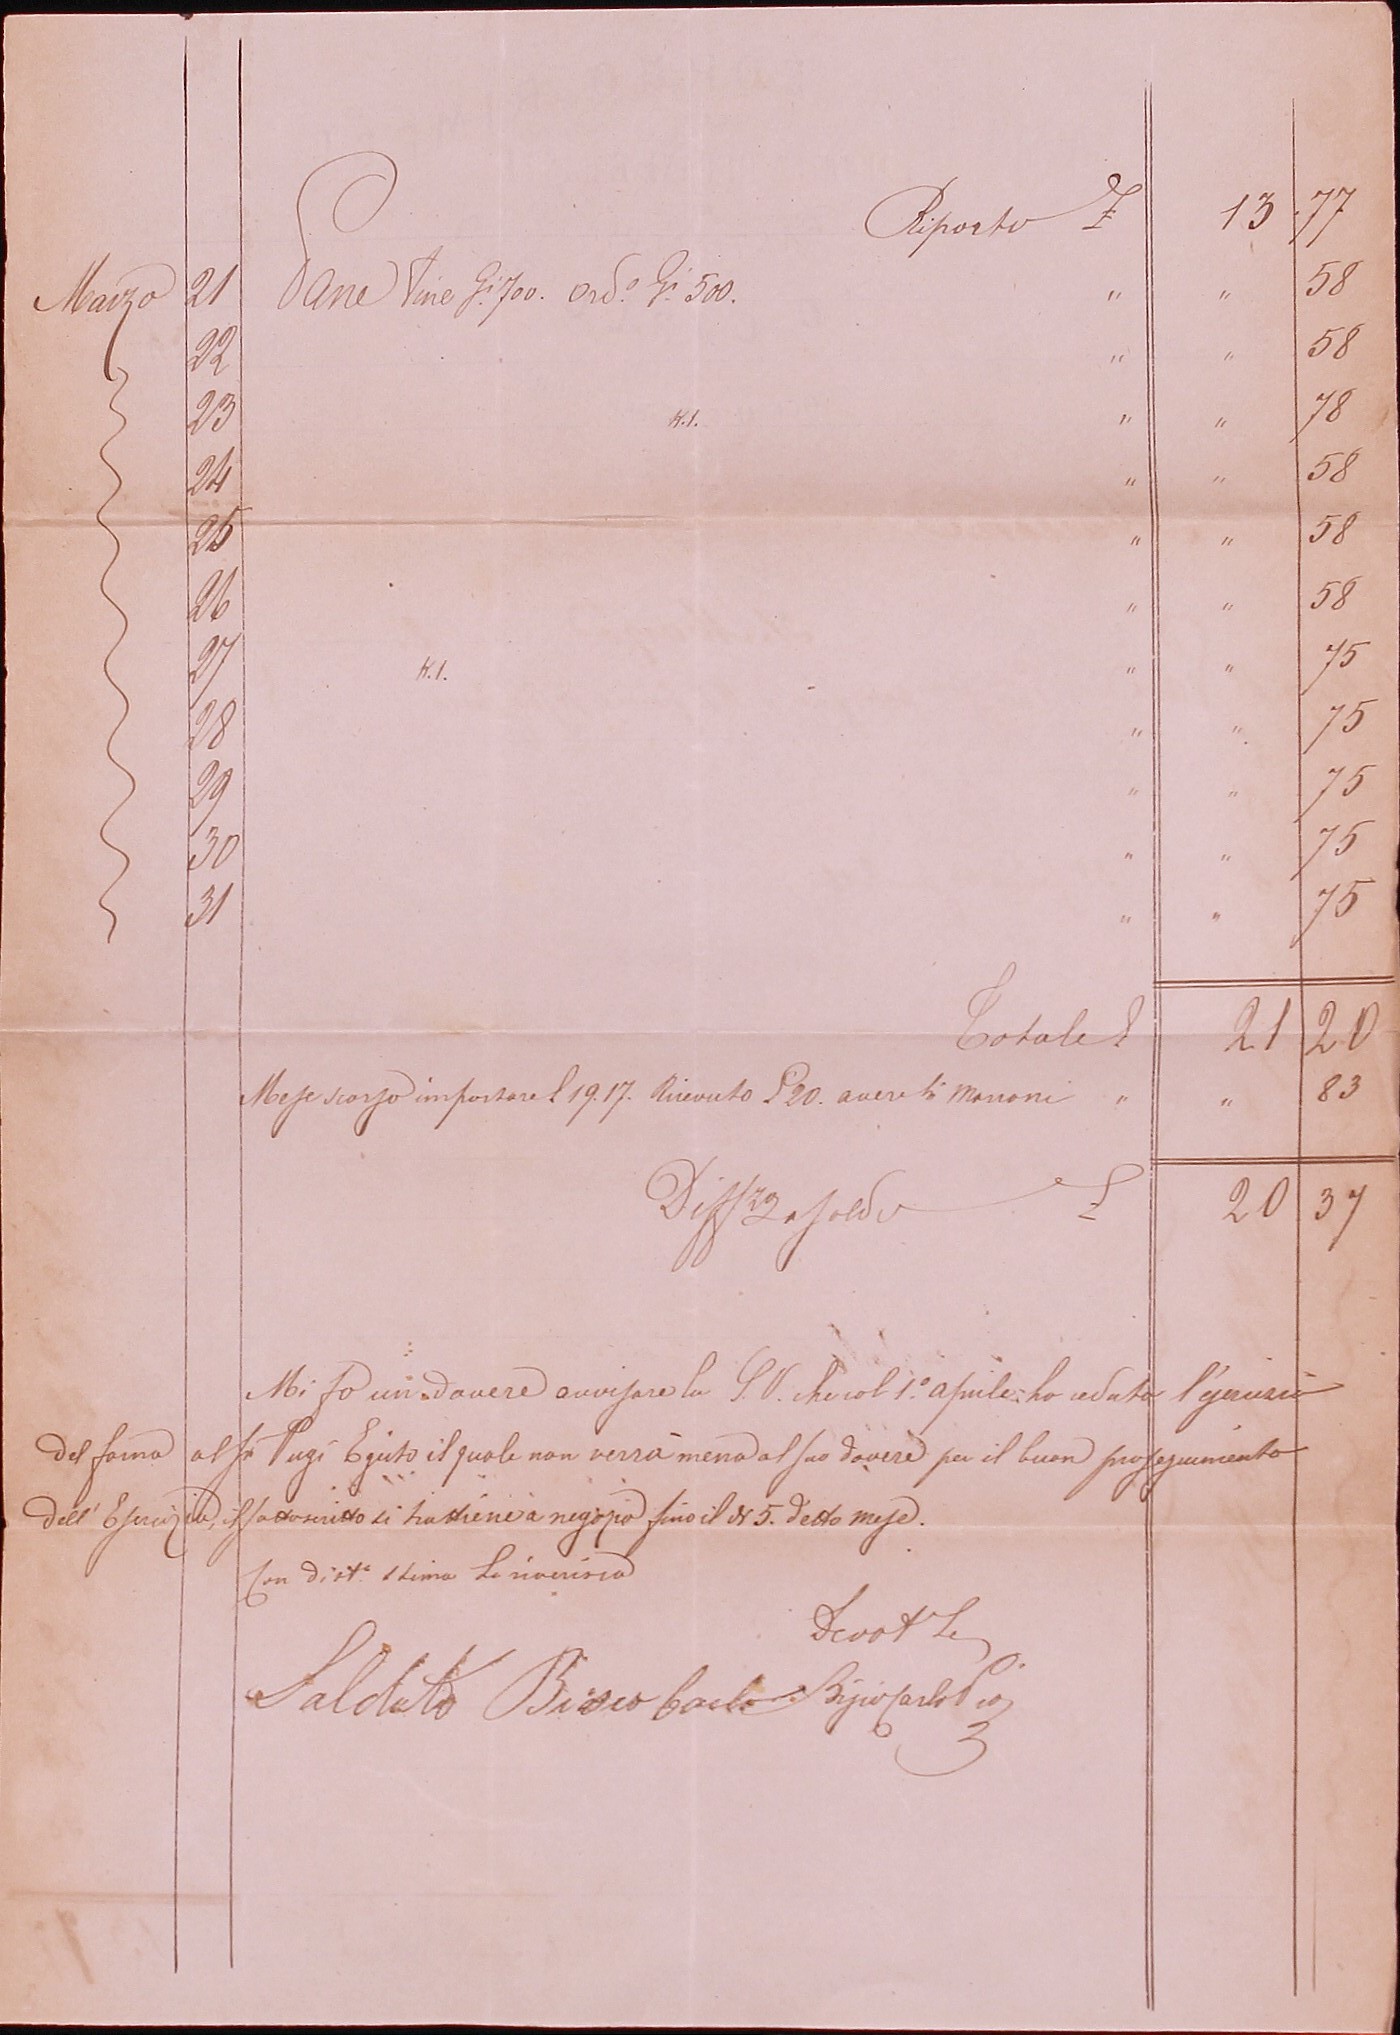 Riporto £ 13 77
Marzo 21 Pane fine Gi. 700. ord.o Gi. 500. " " 58
22 " " 58
23 K.1. " " 78
24 " " 58
25 " " 58
26 " " 58
27 K.1. " " 75
28 " " 75
29 " " 75
30 " " 75
31 " " 75
Totale £ 21 20
Mese scorso importare £ 19.17. Ricevuto £ 20. avere " " 83
Diff.za a saldo £ 20 37
Mi fo un dovere avvisare la S.V. che col 1.o aprile ho ceduto l'esercizio
del forno al Sr Pugi Egisto il quale non verrà meno al suo dovere per il buon proseguimento
dell'Esercizio, il sottoscritto si trattiene a negozio fino il dì 5. detto mese.
Con dist.a stima La riverisco
Saldato Carlo Carlo